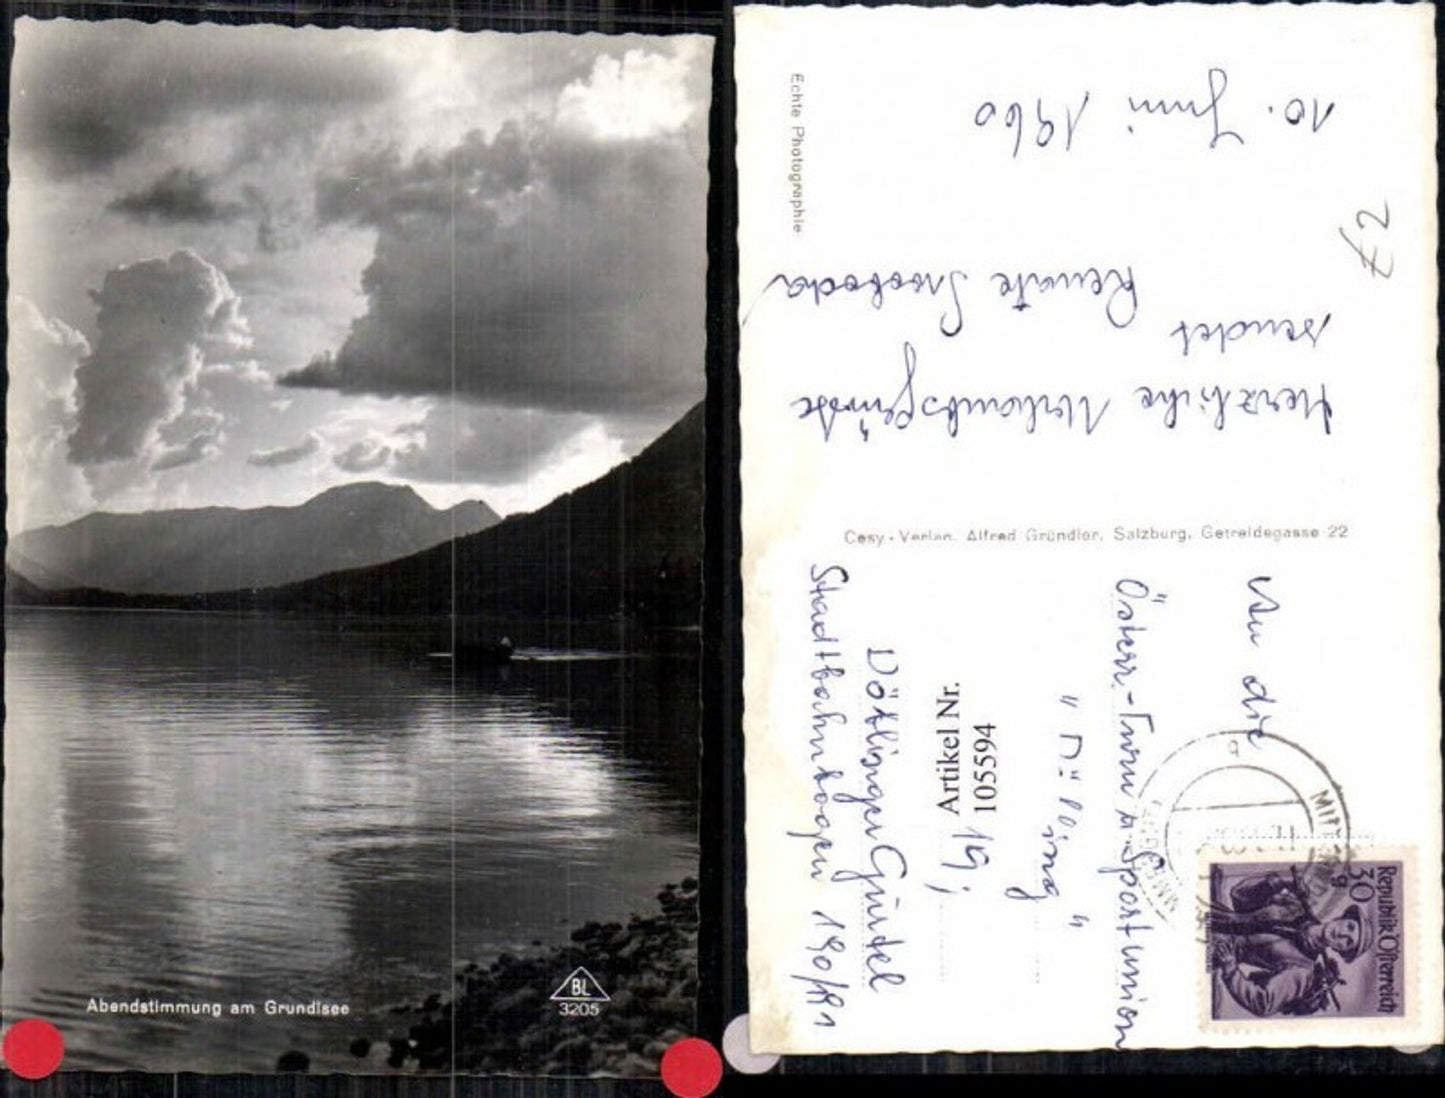 Abendstimmung am Grundlsee
BL
3205
Echte Photographie
10. Juni 1960
£2
Herzliche Urlaubsgrüße
sendet
Renate Swoboda
Cesy-Verlag, Alfred Gründler, Salzburg, Getreidegasse 22
An die
Österr.-Turn u. Sportunion
" Döbling "
19,
Döblinger Gürtel
Stadtbahnbogen 190/191
Artikel Nr.
105594
Republik Österreich
30 g